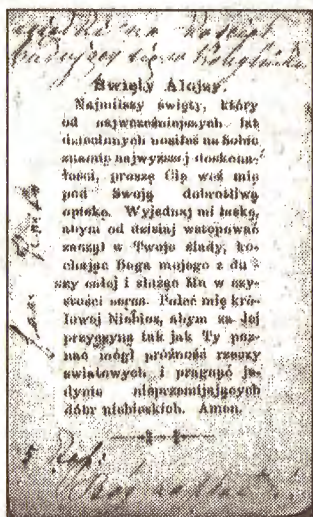 Święty Alojzy.
Najmilszy święty, który
od najwcześniejszych lat
dziecinnych nosiłeś na Sobie
znamię najwyższej doskona-
łości, proszę Cię weź mię
pod Swoją dobrotliwą
opiekę. Wyjednaj mi łaskę,
abym od dzisiaj wstępować
zaczął w Twoje ślady, ko-
chając Boga mojego z du-
szy całej i służąc Mu w czy-
stości serca. Poleć mię kró-
lowej Niebios, abym za Jej
przyczyną tak jak Ty poz-
nać mógł próżność rzeczy
światowych i pragnąć je-
dynie nieprzemijających
dóbr niebieskich. Amen.